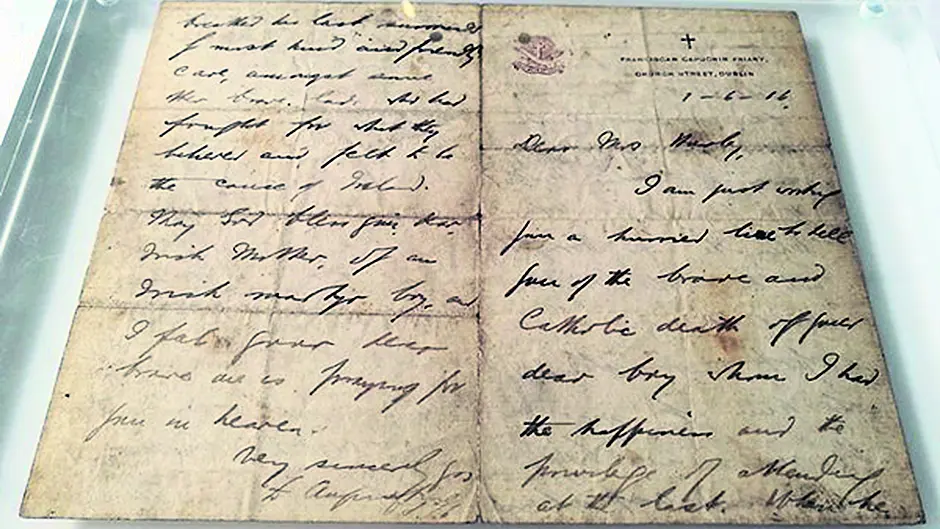 FRANCISCAN CAPUCHIN FRIARY,
CHURCH STREET, DUBLIN
1-6-16.
Dear Mrs Hurley,
I am just writing
you a hurried line to tell
you of the brave and
Catholic death of your
dear boy whom I had
the happiness and the
privilege of attending
at the last. When he
breathed his last surrounded
most kind and friendly
care, amongst some
brave lads who had
fought for what they
believed and felt to be
the cause of Ireland.
May God bless you, dear
Irish Mother, of an
Irish martyr boy, as
I feel your dear
brave one is praying for
you in heaven.
Very sincerely yrs
Fr Augustine